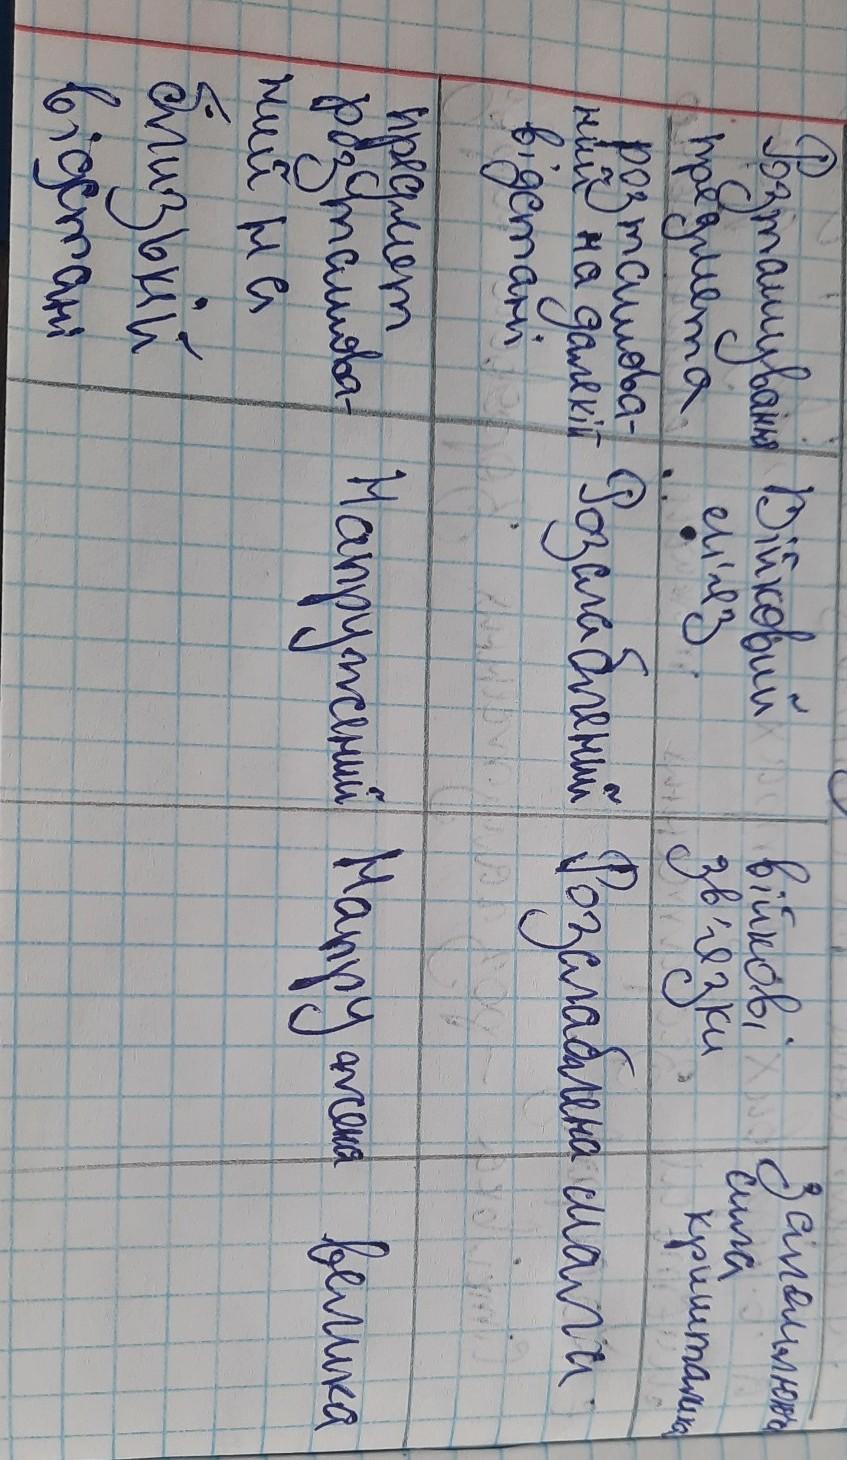 Розташування
предмета
Війковий
м'яз
війкові
зв'язки
Заломлююча
сила
кришталика
розташова-
ний на далекій
відстані
Розслаблений
Розслаблена
мала
предмет
розташова-
ний на
близькій
відстані
Напружений
Напружена
велика